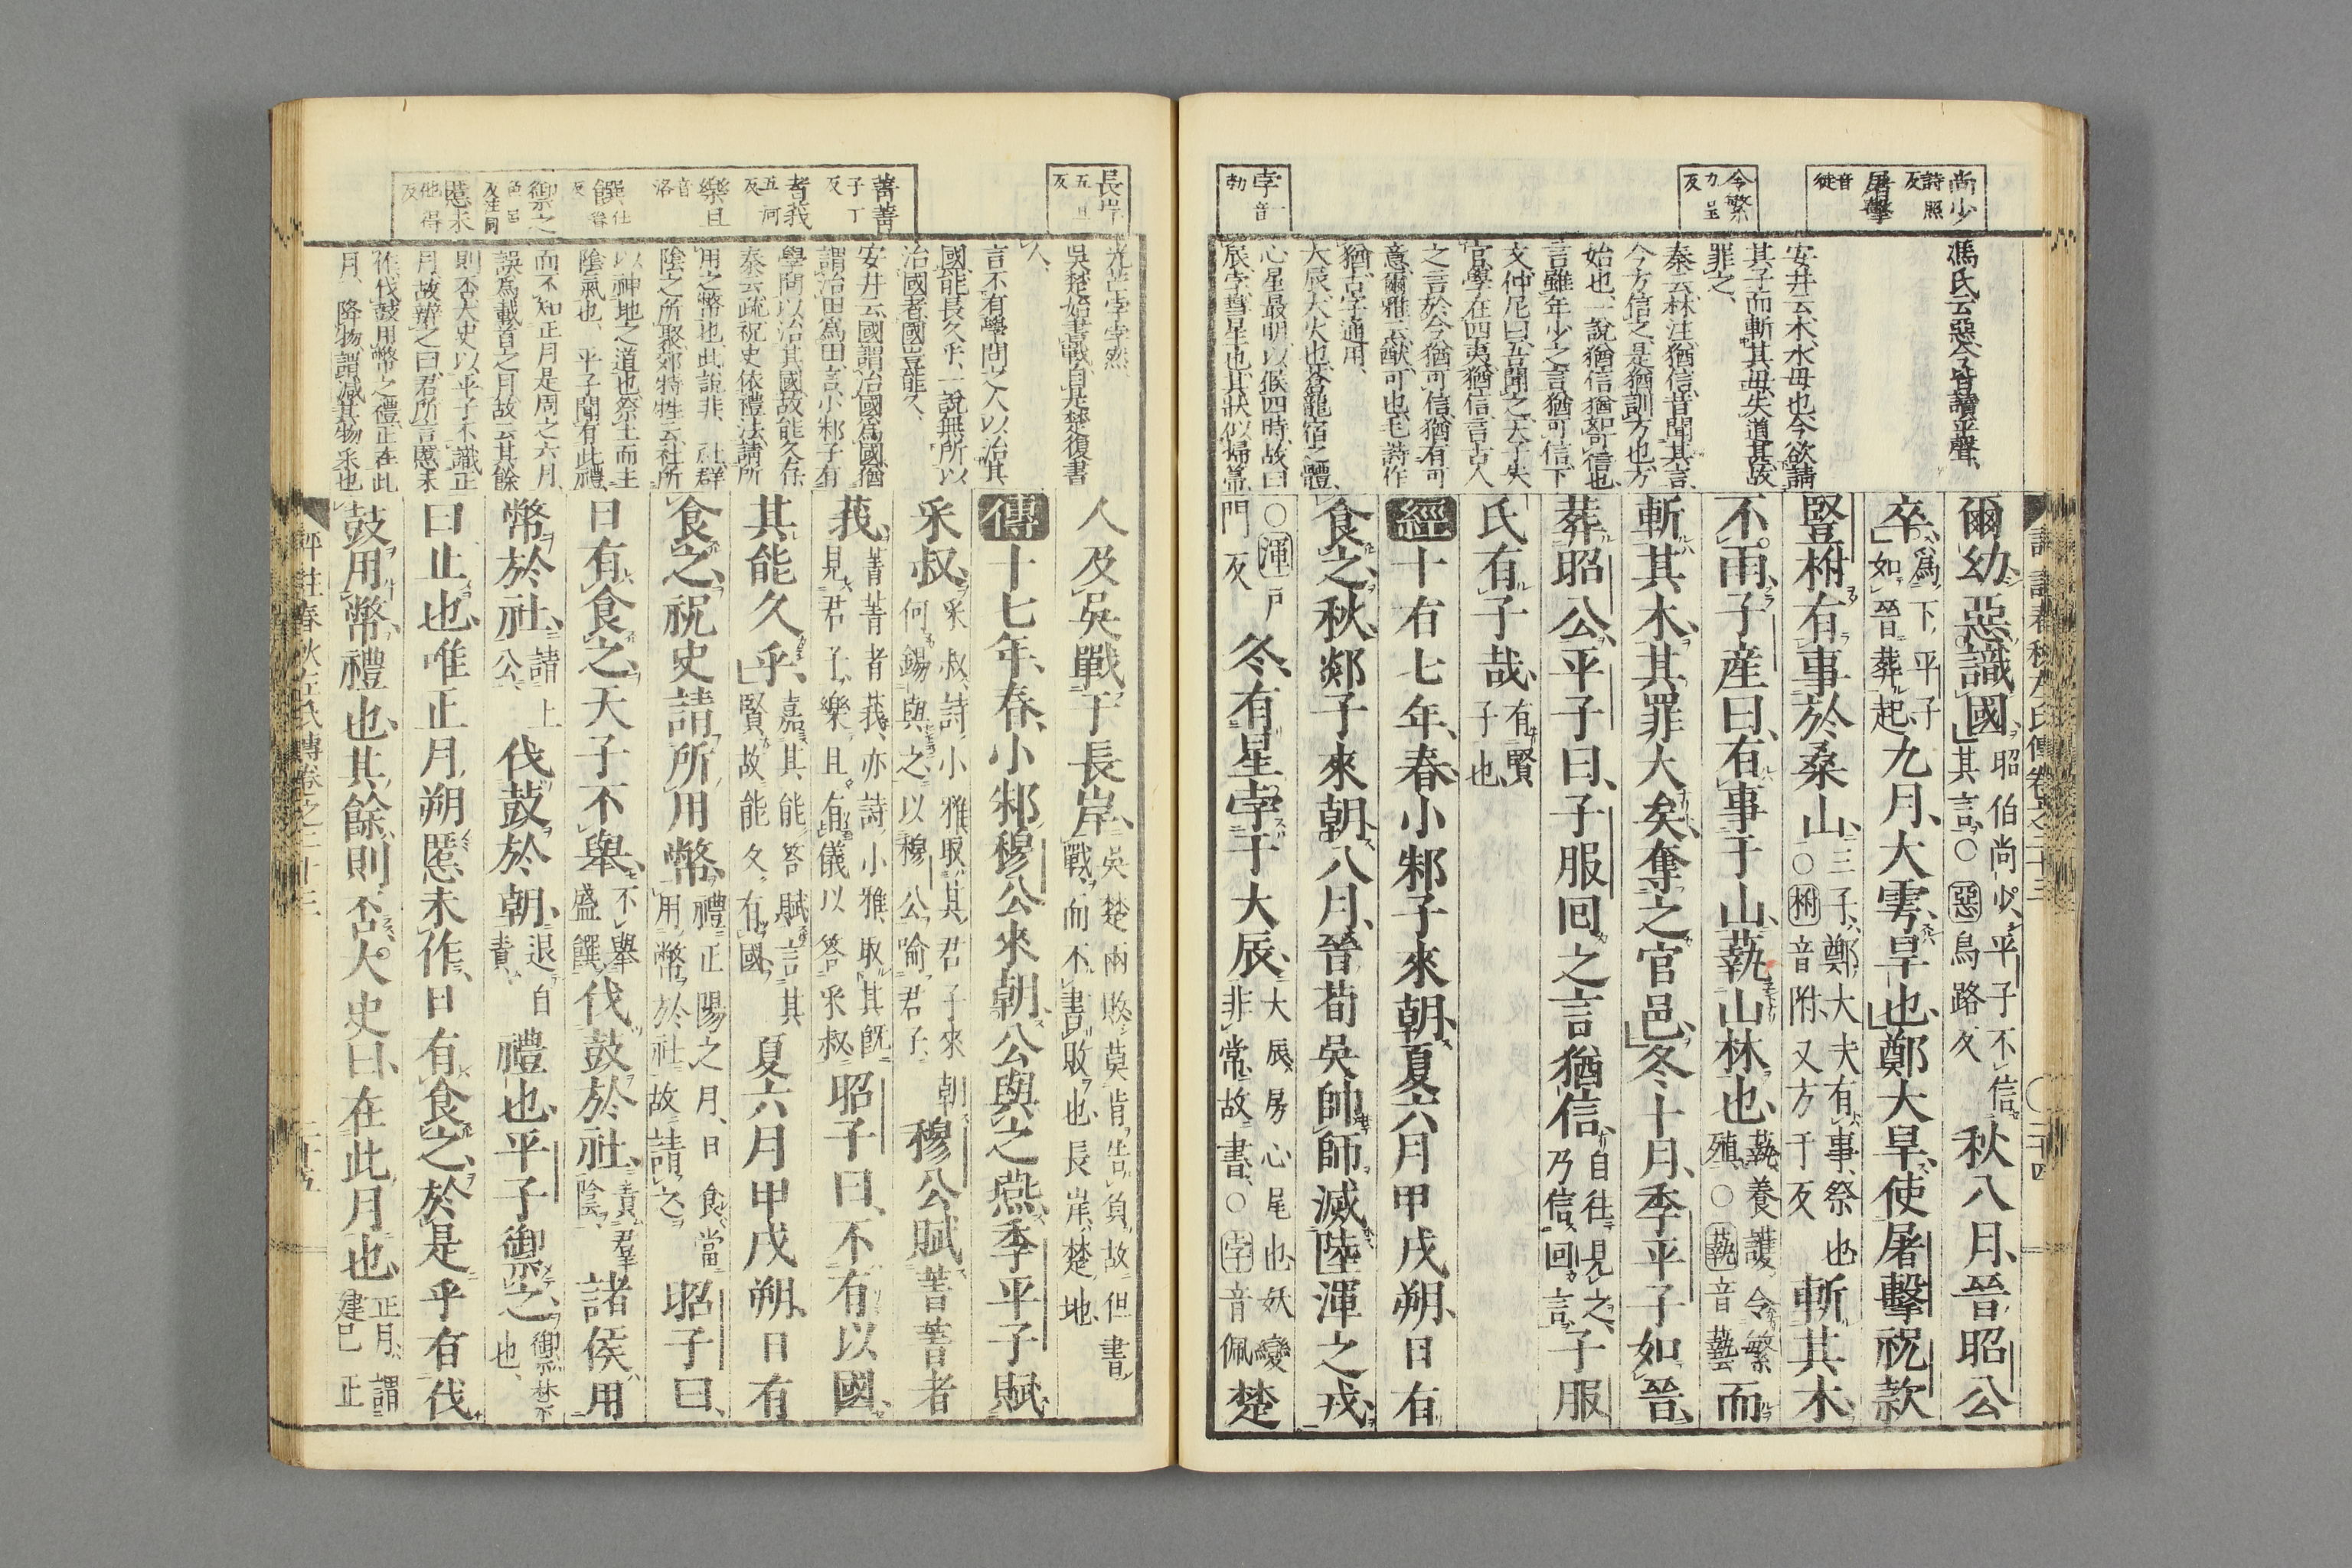 尚少
詩照
反
屠擊
音
徒
令繁
力呈
反
孛音
勃
馮氏云惡今皆讀平聲
安井云木水毋也今欲請
其子而斬其毋失道甚故
罪之
秦云林注猶信音聞其言
今方信之是猶訓方也方
始也一說猶信猶恕可信也
言雖年少之言猶可信下
文仲尼曰吾聞之天子失
官學在四夷猶信言古人
之言於今猶可信猶有可
意爾雅云猷可也毛詩作
猶古字通用
大辰大火也蒼龍宿之體
心星最明以候四時故曰
辰孛彗星也其狀似掃箒
爾幼惡識國昭伯尚少平子不信
其言○惡鳥路反秋八月晉昭公
卒爲下平子
如晉葬起九月大雩旱也鄭大旱使屠擊祝款
豎柎有事於桑山三子鄭大夫有事祭也
○柎音附又方于反斬其木
不雨子產曰有事于山蓺山林也蓺養護令繁
殖○蓺音藝而
斬其木其罪大矣奪之官邑冬十月季平子如晉
葬昭公平子曰子服回之言猶信自往見之
乃信回言子服
氏有子哉有賢
子也
經十有七年春小邾子來朝夏六月甲戌朔日有
食之秋郯子來朝八月晉荀吳帥師滅陸渾之戎
○渾戶
門反冬有星孛于大辰大辰房心尾也妖變
非常故書○孛音佩楚
評註春秋左氏傳卷之二十三
二十四
長岸
五旦
反
菁菁
子丁
反
者莪
五河
反
樂且
音
洛
饌仕
眷
反
御之
魚呂
反注同
慝未
他得
反
光芒孛孛然
吳楚始書戰自是楚復書
人
言不有學問之人以治其
國能長久乎一說無所以
治國者國豈能久
安井云國謂治國爲國猶
謂治田爲田言小邾子有
學問以治其國故能久存
秦云疏祝史依禮法請所
用之幣也此說非 社群
陰之所聚郊特牲云社所
以神地之道也祭土而主
陰氣也 平子聞有此禮
而不知正月是周之六月
誤爲歲首之月故云其餘
則否大史以平子不識正
月故辨之曰君所言慝未
作伐鼓用幣之禮正在此
月 降物謂減其物采也
人及吳戰于長岸吳楚兩敗莫肯告負故但書
戰而不書敗也長岸楚地
傳十七年春小邾穆公來朝公與之燕季平子賦
采叔采叔詩小雅取其君子來朝
何錫與之以穆公喻君子穆公賦菁菁者
莪菁菁者莪亦詩小雅取其既
見君子樂且有儀以答采叔昭子曰不有以國
其能久乎嘉其能答賦言其
賢故能久有國夏六月甲戌朔日有
食之祝史請所用幣禮正陽之月日食當
用幣於社故請之昭子曰
日有食之天子不舉不舉
盛饌伐鼓於社責群
陰諸侯用
幣於社請上
公伐鼓於朝退自
責禮也平子禦之禦禁
也
曰止也唯正月朔慝未作日有食之於是乎有伐
鼓用幣禮也其餘則否大史曰在此月也正月謂
建巳正
評註春秋左氏傳卷之二十三
二十五